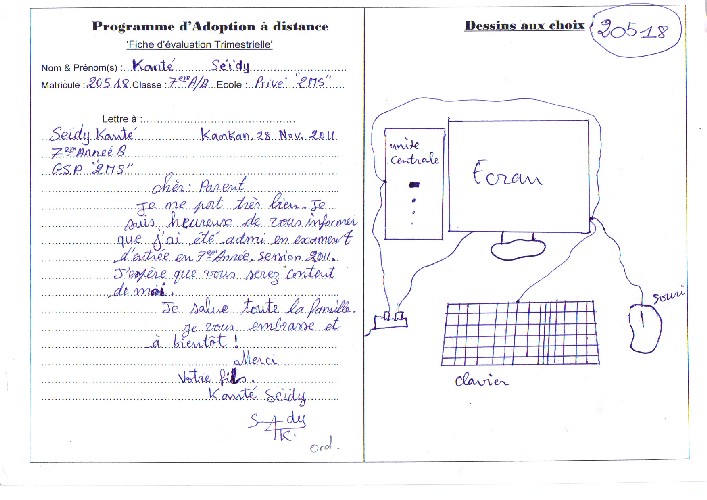 Programme d'Adoption à distance
'Fiche d'évaluation Trimestrielle'
Nom & Prénom(s) : Kanté Seïdy
Matricule : 20518 Classe : 7ème A/B Ecole : Privé "2MS"
Lettre à :
Seïdy Kanté Kankan. 28. Nov. 2011
7ème Année B
G.S.P. "2MS"
chèr : Parent
Je me port très bien. Je
suis heureux de vous informer
que j'ai été admi en examen
d'entrée en 7ème Année. Session 2011.
J'espère que vous serez content
de moi.
Je salue toute la famille.
je vous embrasse et
à bientôt !
Merci
Votre fils.
Kanté Seïdy
Ord.
Dessins aux choix
20518
unité
centrale
Ecran
souri
clavier